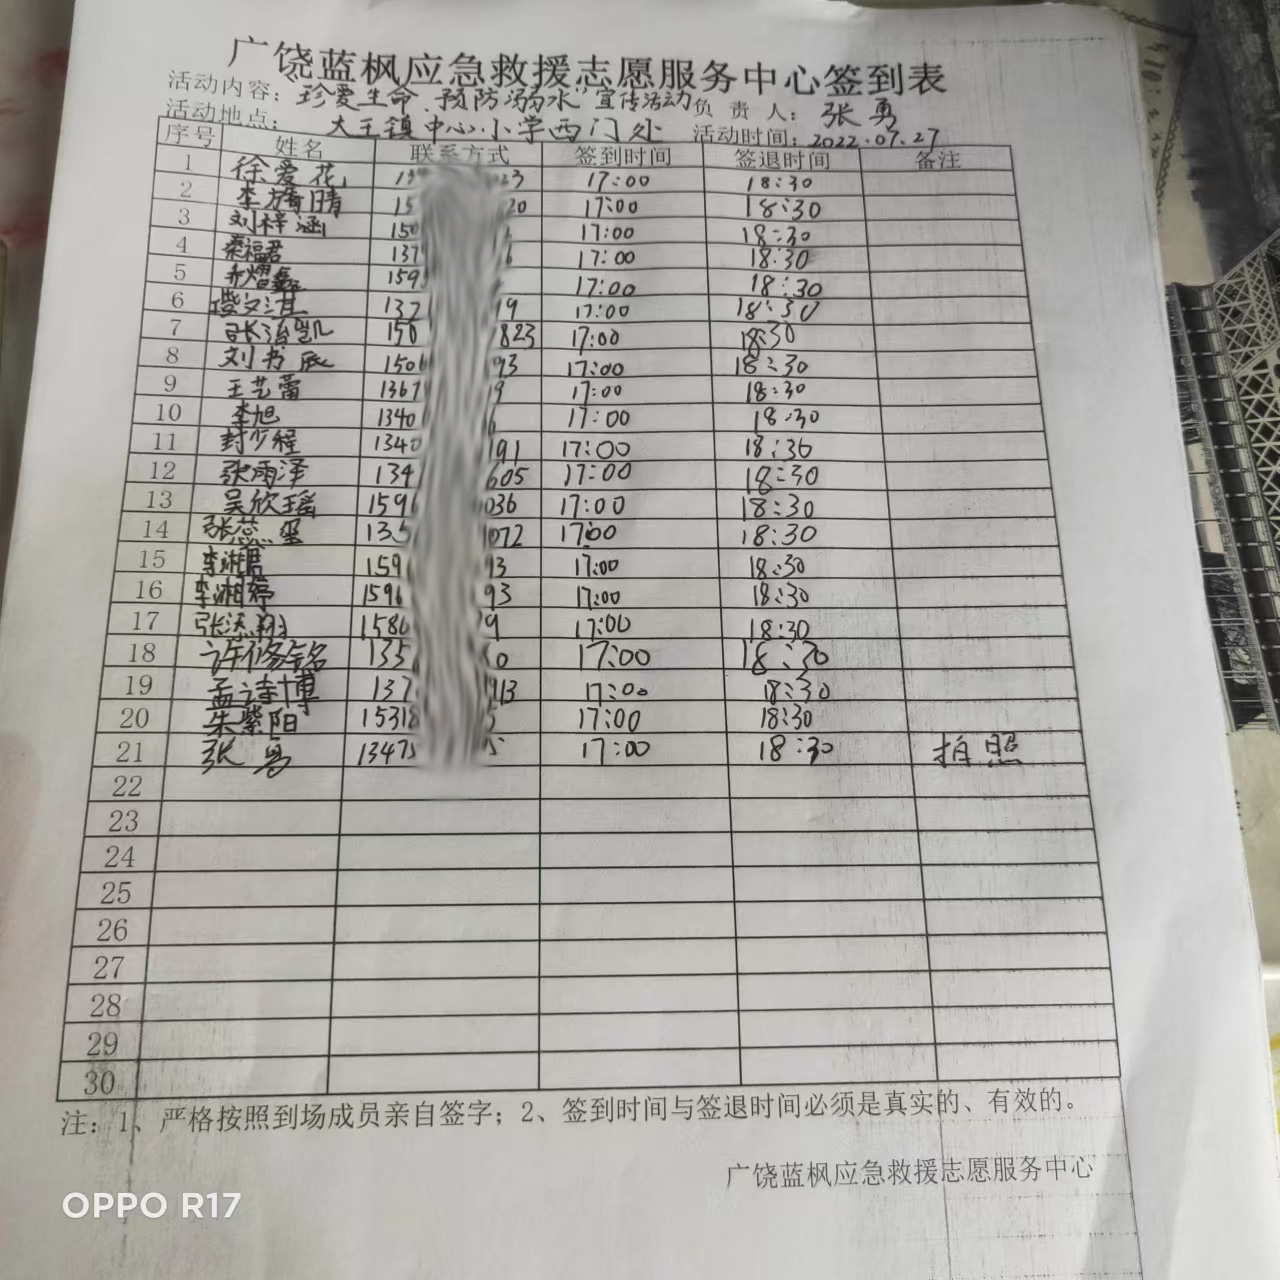 广饶蓝枫应急救援志愿服务中心签到表
活动内容：“珍爱生命、预防溺水”宣传活动 负责人：张勇
活动地点：大王镇中心小学西门处 活动时间：2022.07.27
序号 姓名 联系方式 签到时间 签退时间 备注
1 徐爱花 17:00 18:30
2 17:00 18:30
3 刘梓涵 150 17:00 18:30
4 秦福君 137 17:00 18:30
5 159 17:00 18:30
6 137 19 17:00 18:30
7 150 823 17:00 18:30
8 刘书辰 150 93 17:00 18:30
9 王艺蕾 1367 9 17:00 18:30
10 李旭 1340 17:00 18:30
11 封少程 1340 191 17:00 18:30
12 张雨泽 134 605 17:00 18:30
13 吴欣瑶 1596 036 17:00 18:30
14 135 072 17:00 18:30
15 159 93 17:00 18:30
16 李湘婷 1596 93 17:00 18:30
17 1586 9 17:00 18:30
18 许修铭 135 0 17:00 18:30
19 孟诗博 137 913 17:00 18:30
20 朱紫阳 15318 5 17:00 18:30
21 张勇 13475 5 17:00 18:30 拍照
22
23
24
25
26
27
28
29
30
注：1、严格按照到场成员亲自签字；2、签到时间与签退时间必须是真实的、有效的。
广饶蓝枫应急救援志愿服务中心
OPPO R17